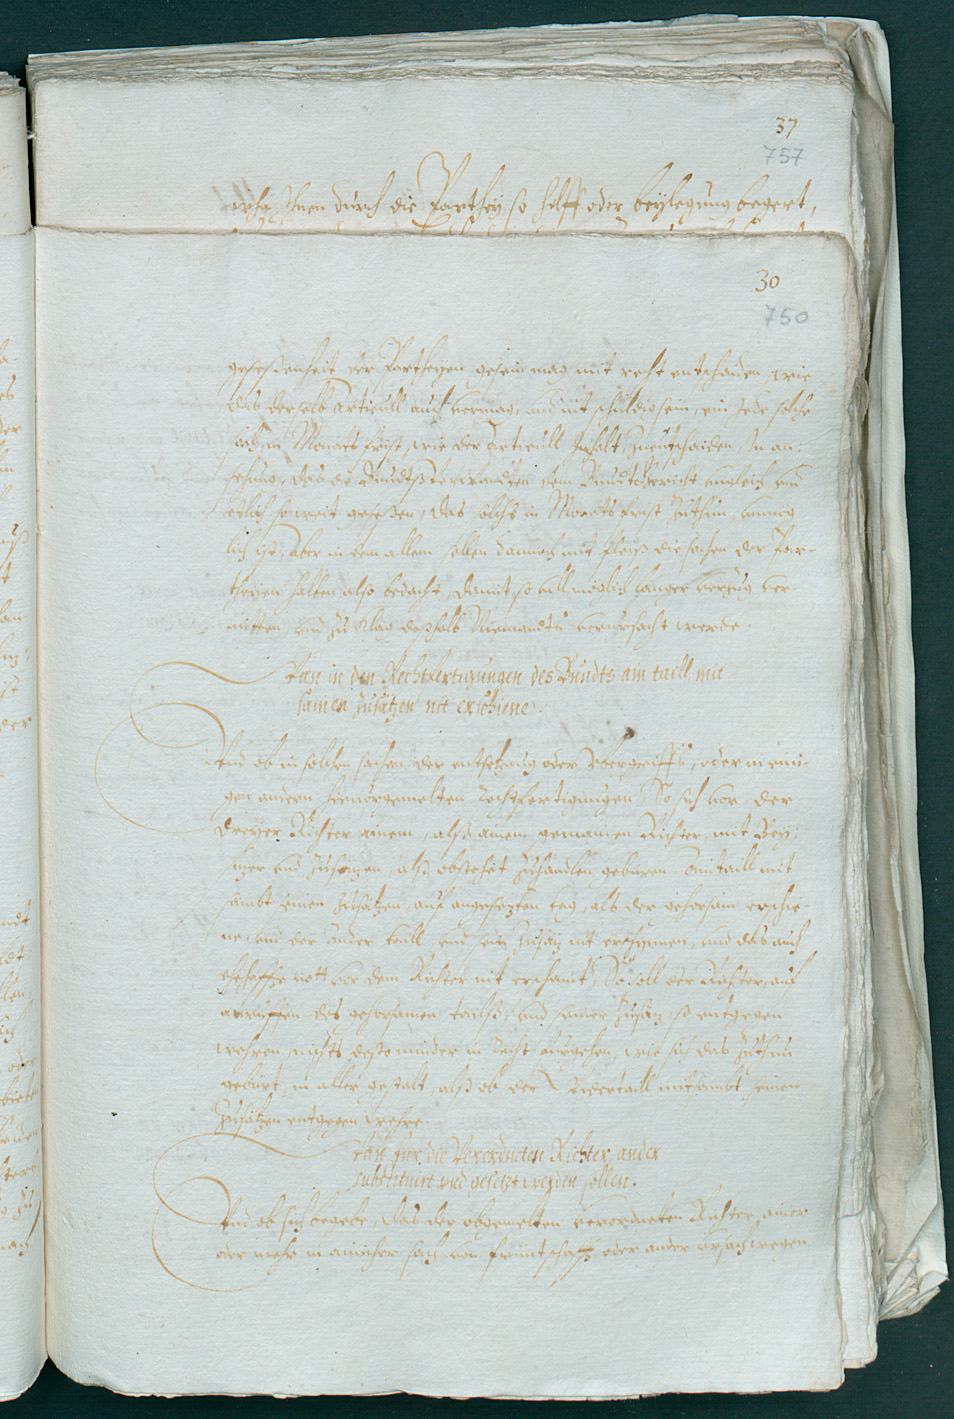 37
757
Ihnen durch die Parthey so hilff oder beylegung begert,
30
750
gesessenheit der Partheyen gesein mag mit recht entschaiden, wie
das derselb Articull auch vermag, und nit schuldig sein, ein Jede solche
sach in Monats frist, wie der Articull Inhalt, zuentschaiden, In an-
sehung, das die Bundtsverwandten dem Bundtsgericht ungleich und
etlich so weit gesessen, das solchs in Monats frist zuthun, unmüg
lich ist, aber in dem allem sollen dannoch mit fleiß die sachen der Par-
theyen halben also bedacht, damit so vill möglich langer verzug ver-
mitten und zu Clag deßhalb Niemandts verursacht werde.
Wan in den Rechtfertigungen des Bundts ain taill mit
sainen Zusätzen nit erschiene.
Und ob in solchen sachen der entsetzung oder Übergriffs, oder in eini-
gen andern hievorgemelten Rechtfertigungen, So sich vor der
dreyer Richter ainem, alß ainem gemainen Richter, mit Bey
und Zusätzen, alß obstehet zuhandlen geburen, ain taill mit
sambt seinen Zusätzen, auf angesetzten tag, als der gehorsam erschie-
ne, und der ander taill und sein Zusatz nit erschinen, und das auch
ehehaffte nott vor dem Richter nit erschaint, So soll der Richter auf
anruffen des gehorsamen tailß, und seiner Zusätz so entgegen
wehren, nichts desto minder in Recht fürgehen, wie sich das zuthun
gebürt, in aller gestalt, alß ob der Widertaill mit sambt seinen
Zusätzen entgegen were.
Wan für die Verordneten Richter ander
substituirt und gesetzt werden sollen.
Und ob sich begebe, das der obgemelten verordneten Richter, ainer
oder mehr in ainicher sach von freuntschafft oder ander ursach wegen